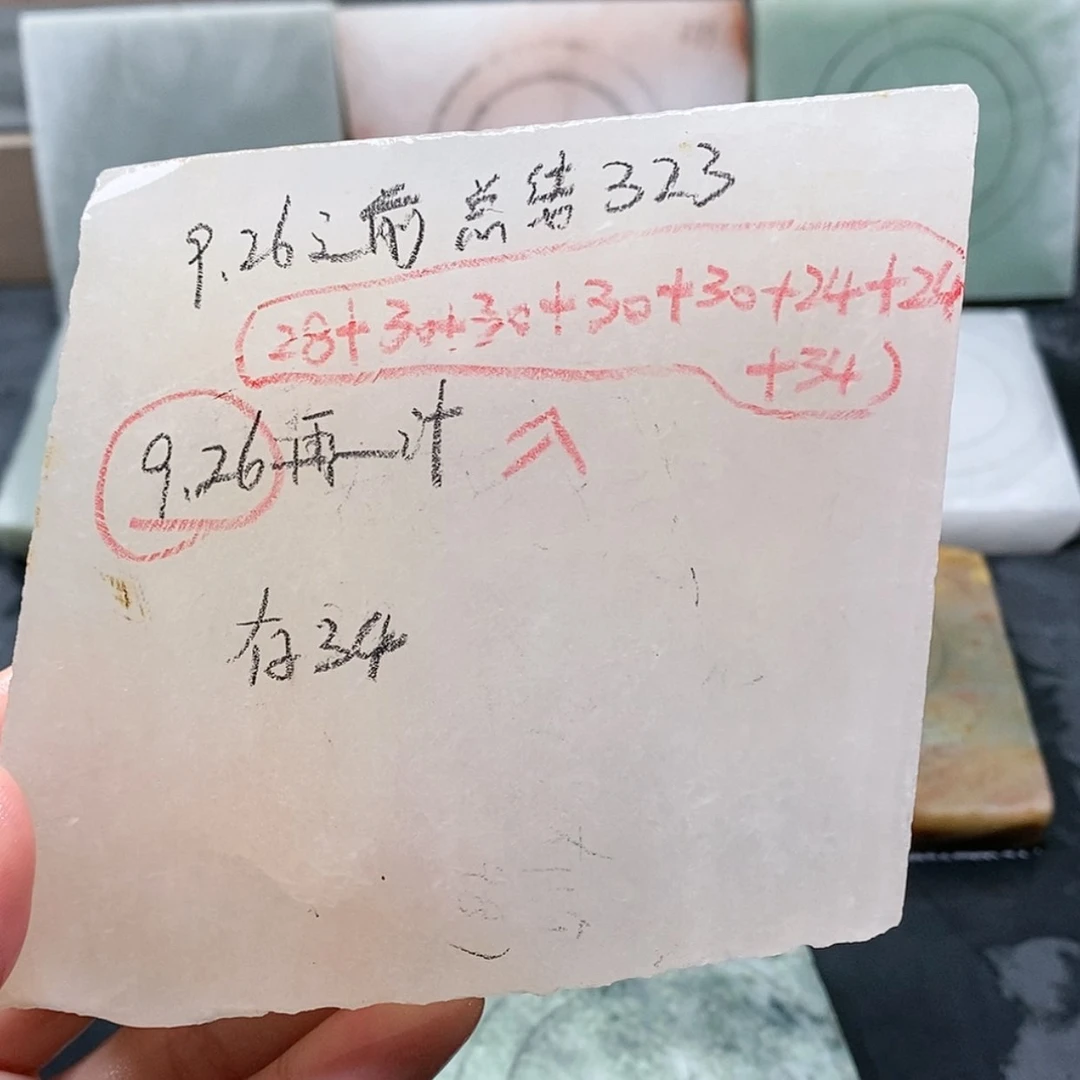 9.26之前总结323
28+30+30+30+30+24+24
+34
9.26再一计
存34